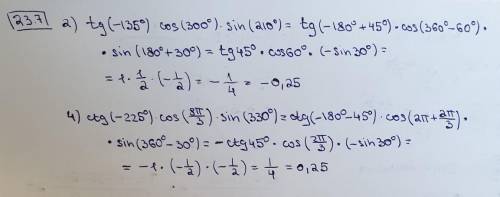 237 2) tg(-135°) cos(300°)·sin(210°) = tg(-180°+45°)·cos(360°-60°)·
·sin(180°+30°) = tg45°·cos60°·(-sin30°) =
= 1·1/2·(-1/2) = -1/4 = -0,25
4) ctg(-225°)·cos(8π/3)·sin(330°) = ctg(-180°-45°)·cos(2π+2π/3)·
·sin(360°-30°) = -ctg45°·cos(2π/3)·(-sin30°) =
= -1·(-1/2)·(-1/2) = 1/4 = 0,25